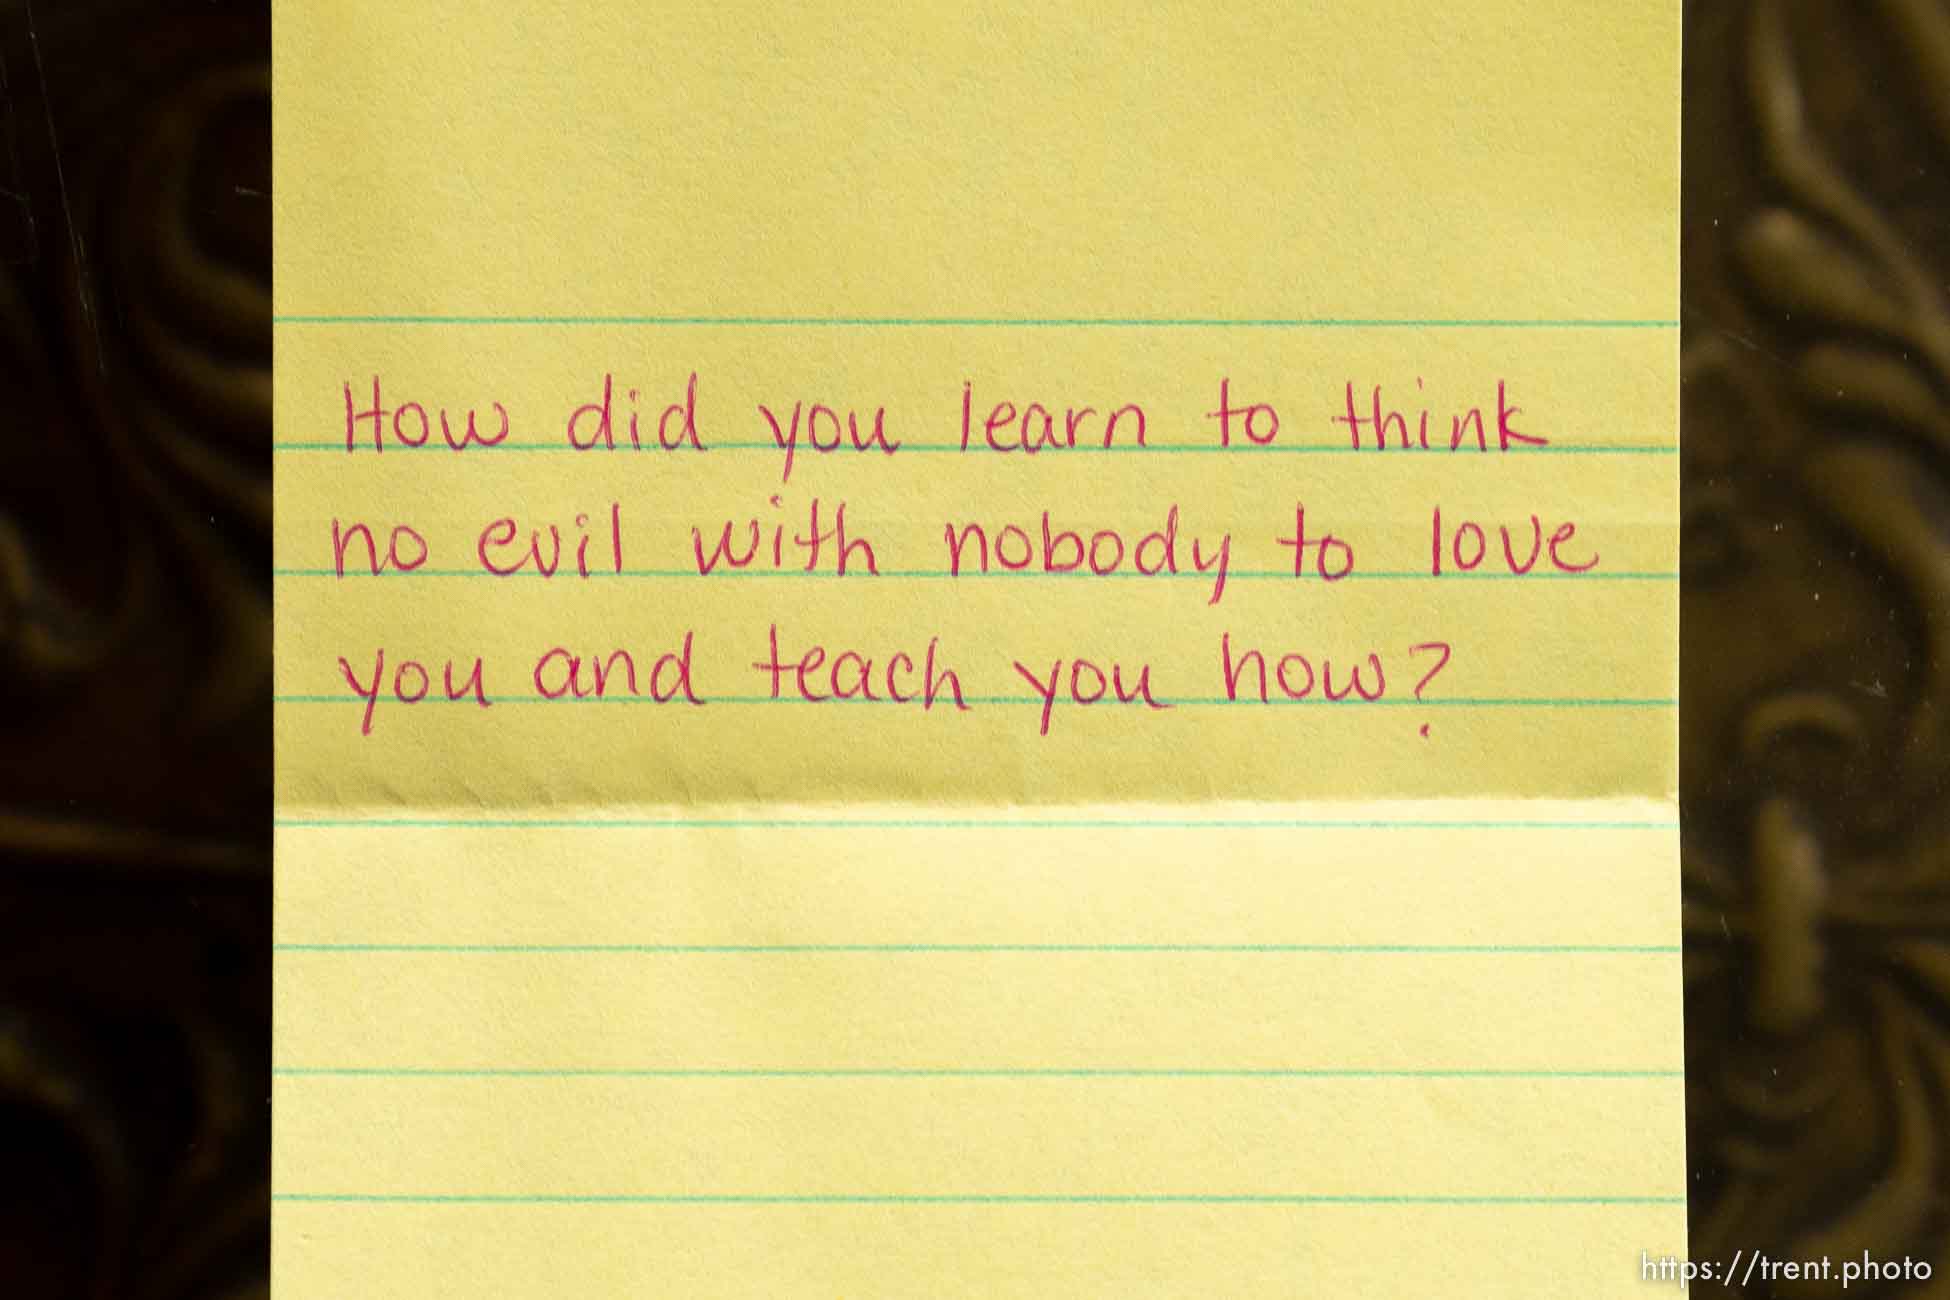 How did you learn to think
no evil with nobody to love
you and teach you how?
https://trent.photo